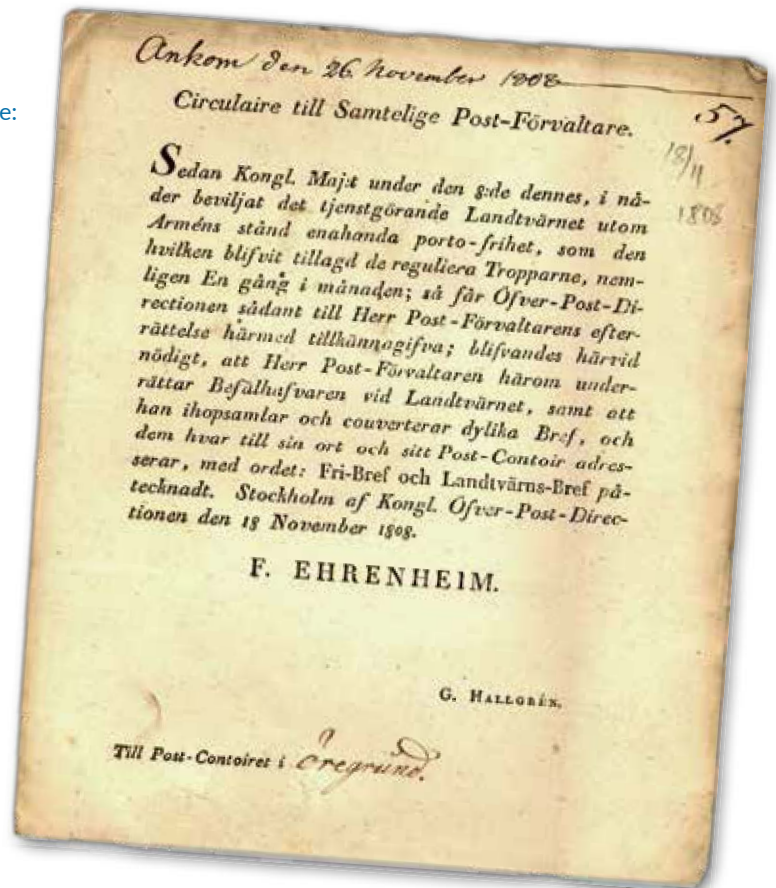 Ankom den 26 November 1808
e:
Circulaire till Samtelige Post-Förvaltare.
57.
18/11
1808
Sedan Kongl. Maj:t under den 8:de dennes, i nå-
der beviljat det tjenstgörande Landtvärnet utom
Arméns stånd enahanda porto-frihet, som den
hvilken blifvit tillagd de reguliera Tropparne, nem-
ligen En gång i månaden; så får Öfver-Post-Di-
rectionen sådant till Herr Post-Förvaltarens efter-
rättelse härmed tillkännagifva; blifvandes härvid
nödigt, att Herr Post-Förvaltaren härom under-
rättar Befälhafvaren vid Landtvärnet, samt att
han ihopsamlar och couverterar dylika Bref, och
dem hvar till sin ort och sitt Post-Contoir adres-
serar, med ordet: Fri-Bref och Landtvärns-Bref på-
tecknadt. Stockholm af Kongl. Öfver-Post-Direc-
tionen den 18 November 1808.
F. EHRENHEIM.
G. HALLGRÉN.
Till Post-Contoiret i Öregrund.